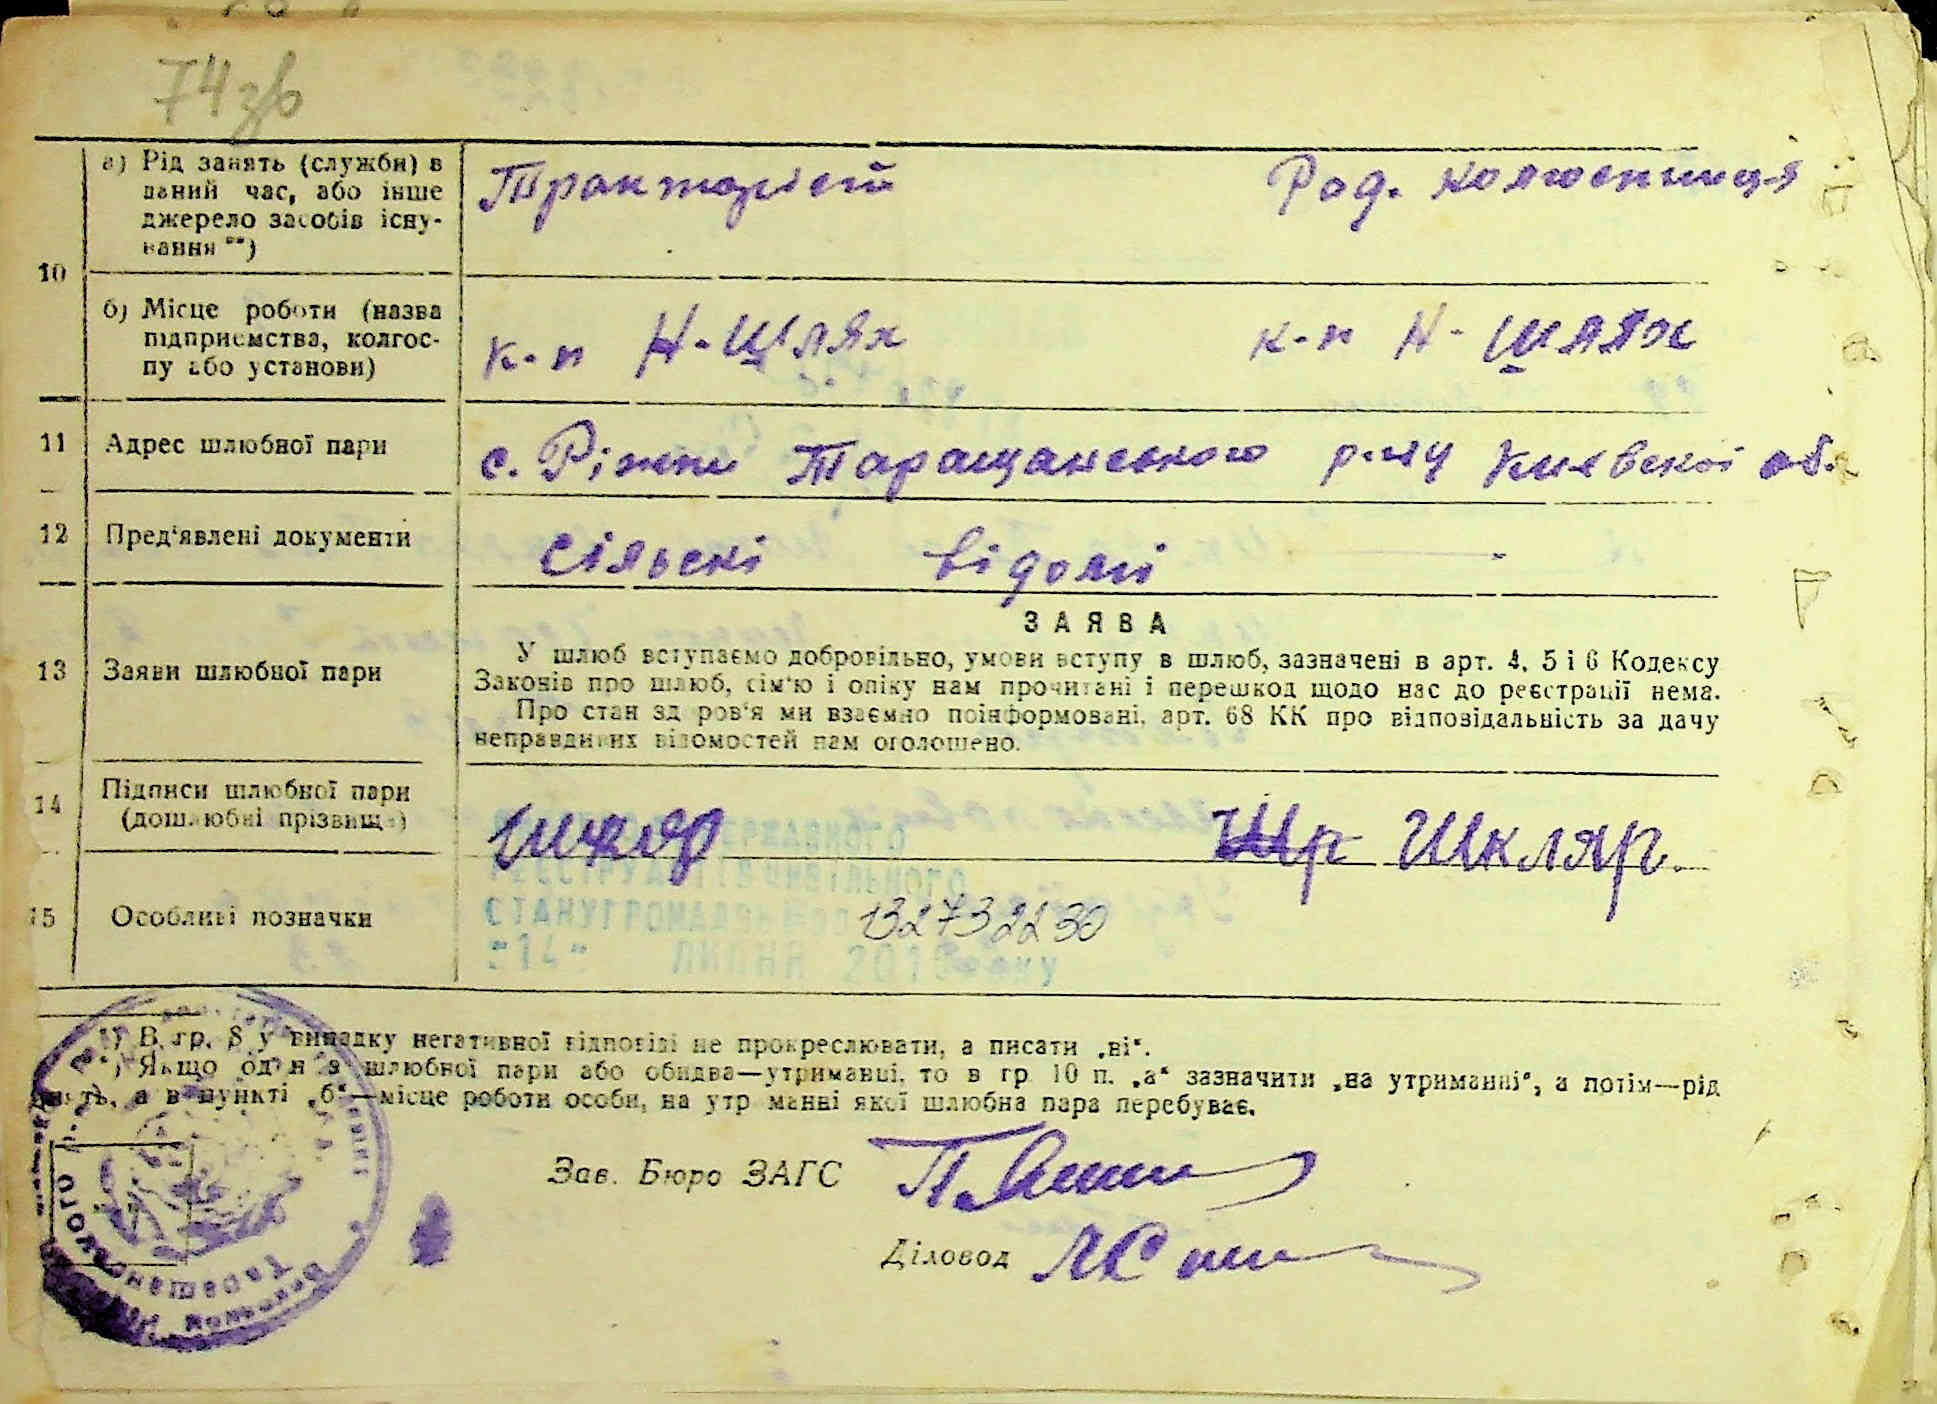 74зв
10
а) Рід занять (служби) в
даний час, або інше
джерело засобів існу-
вання **)
Тракторіст
Ряд. колгоспниця
б) Місце роботи (назва
підприємства, колгос-
пу або установи)
к-п Н-Шлях
к-п Н-Шлях
11 Адрес шлюбної пари
с. Ріжки Таращанського р-ну Київскоі об.
12 Пред'явлені документи
Сільскі відомі
ЗАЯВА
13 Заяви шлюбної пари
У шлюб вступаємо добровільно, умови вступу в шлюб, зазначені в арт. 4, 5 і 6 Кодексу
Законів про шлюб, сім'ю і опіку нам прочитані і перешкод щодо нас до реєстрації нема.
Про стан здоров'я ми взаємно поінформовані, арт. 68 КК про відповідальність за дачу
неправдивих відомостей нам оголошено.
14 Підписи шлюбної пари
(дошлюбні прізвища)
Шкляр.
ДЕРЖАВНОГО
РЕЄСТРУ АКТІВ ЦИВІЛЬНОГО
СТАНУ ГРОМАДЯН
"14" ЛИПНЯ 201 року
15 Особливі позначки
132732230
*) В гр. 8 у випадку негативної відповіді не прокреслювати, а писати „ні“.
**) Якщо один з шлюбної пари або обидва—утриманці, то в гр. 10 п. „а“ зазначити „на утриманні“, а потім—рід
занять, а в пункті „б“—місце роботи особи, на утриманні якої шлюбна пара перебуває.
Зав. Бюро ЗАГС
Діловод
Таращанського